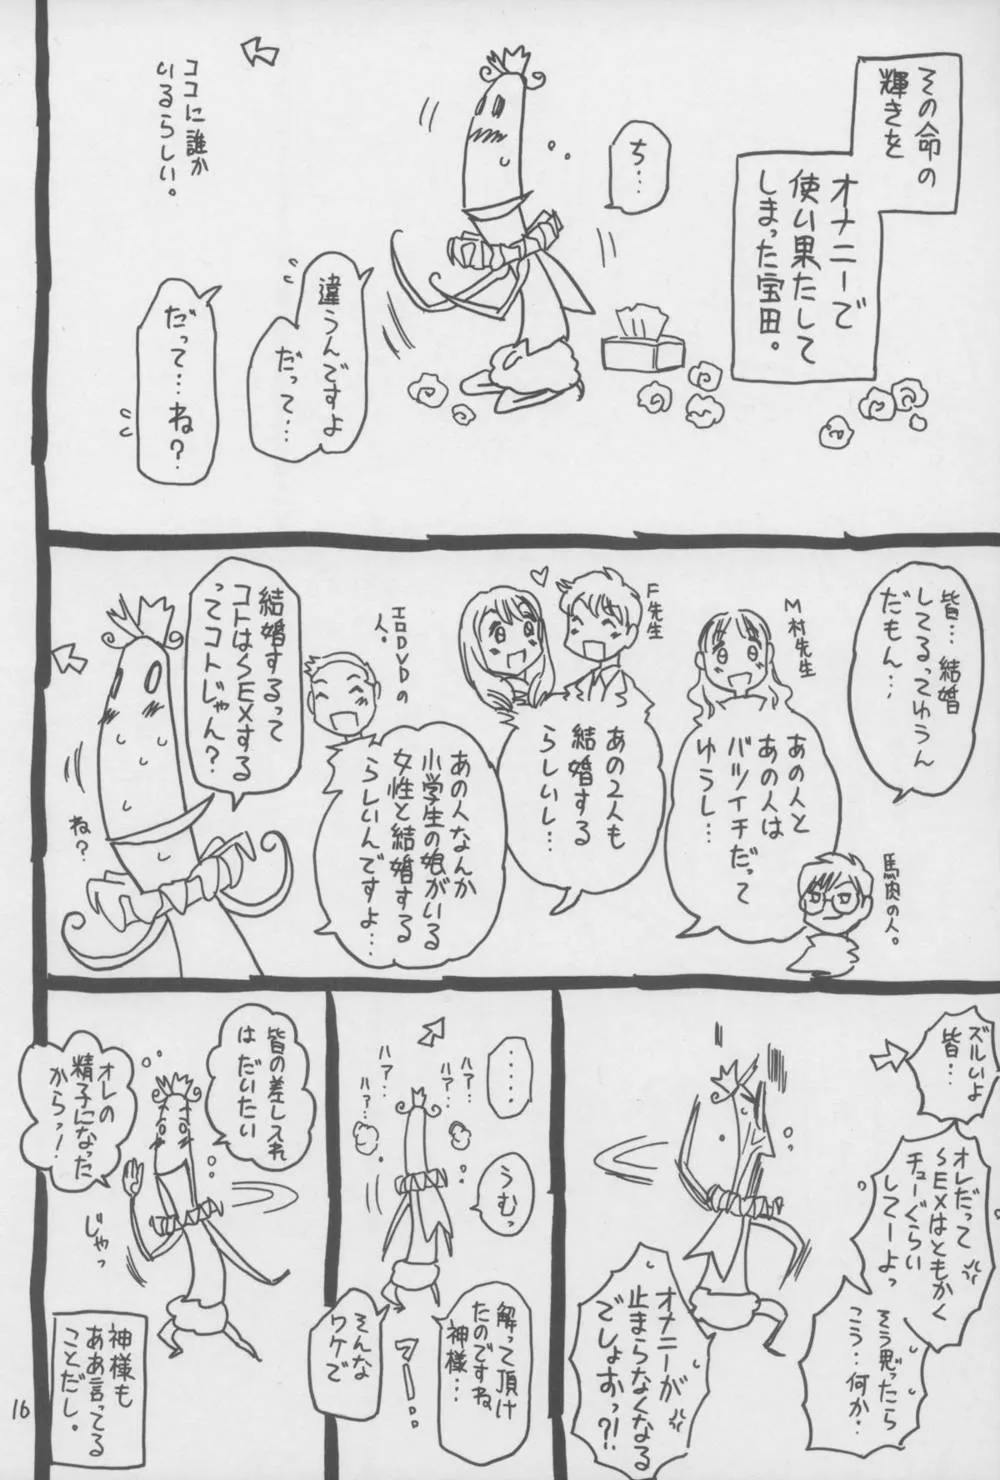 その命の
輝きを
オナニーで
使い果たして
しまった宝田。
ち…
ココに誰か
いるらしい。
違うんですよ
だって…
だって…ね?
皆…結婚
してるってゆうん
だもん…
M村先生
あの人と
あの人は
バツイチだって
ゆうし…
馬肉の人。
F先生
あの2人も
結婚する
らしいし…
エロDVDの
人。
あの人なんか
小学生の娘がいる
女性と結婚する
らしいんですよ…
結婚するって
コトはSEXする
ってコトじゃん?
ね?
ズルいよ
皆…
オレだって
SEXはともかく
チューぐらい
してーよっ
そう思ったら
こう…何か…
オナニーが
止まらなくなる
でしょおっ?!
……
ハァ…
ハァ…
ハァ…
ハァ…
うむっ
解って頂け
たのですね
神様…
そんな
ワケで
皆の差し入れ
は だいたい
オレの
精子になった
からっ!
じゃっ
神様も
ああ言ってる
ことだし。
16